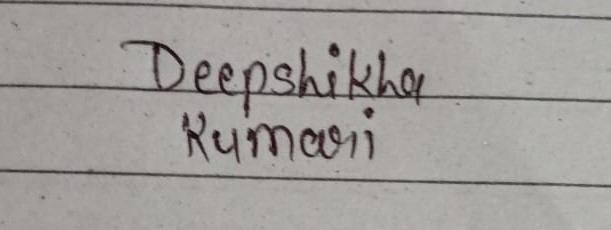 Deepshikha
Kumari